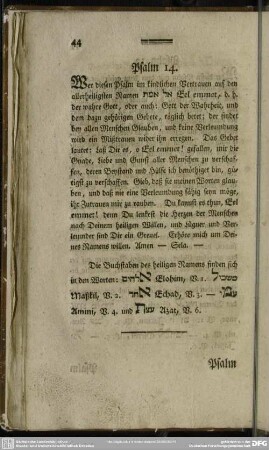 44
Psalm 14.
Wer diesen Psalm im kindlichen Vertrauen auf den
allerheiligsten Namen אל אמת Eel emmet, d. h.
der wahre Gott, oder auch: Gott der Wahrheit, und
dem dazu gehörigen Gebete, täglich betet: der findet
bey allen Menschen Glauben, und keine Verleumdung
wird ein Mißtrauen wider ihn erregen. Das Gebet
lautet: daß Du es, o Eel emmet! gefallen, mir die
Gnade, Liebe und Gunst aller Menschen zu verschaf-
fen, deren Beystand und Hülfe ich benöthiget bin, gü-
tigst zu verschaffen. Gieb, daß sie meinen Worten glau-
ben, und daß nie eine Verleumdung fähig seyn möge,
ihr Zutrauen mir zu rauben. Du kannst es thun, Eel
emmet! denn Du lenkest die Herzen der Menschen
nach Deinem heiligen Willen, und Lügner und Ver-
leumder sind Dir ein Greuel. Erhöre mich um Dei-
nes Namens willen. Amen — Sela. —
Die Buchstaben des heiligen Namens finden sich
in den Worten: אלהים Elohim, V. 1. משכיל
Maskil, V. 2. אחד Echad, V. 3. עמי
Ammi, V. 4. und עצת Azat, V. 6.
Psalm